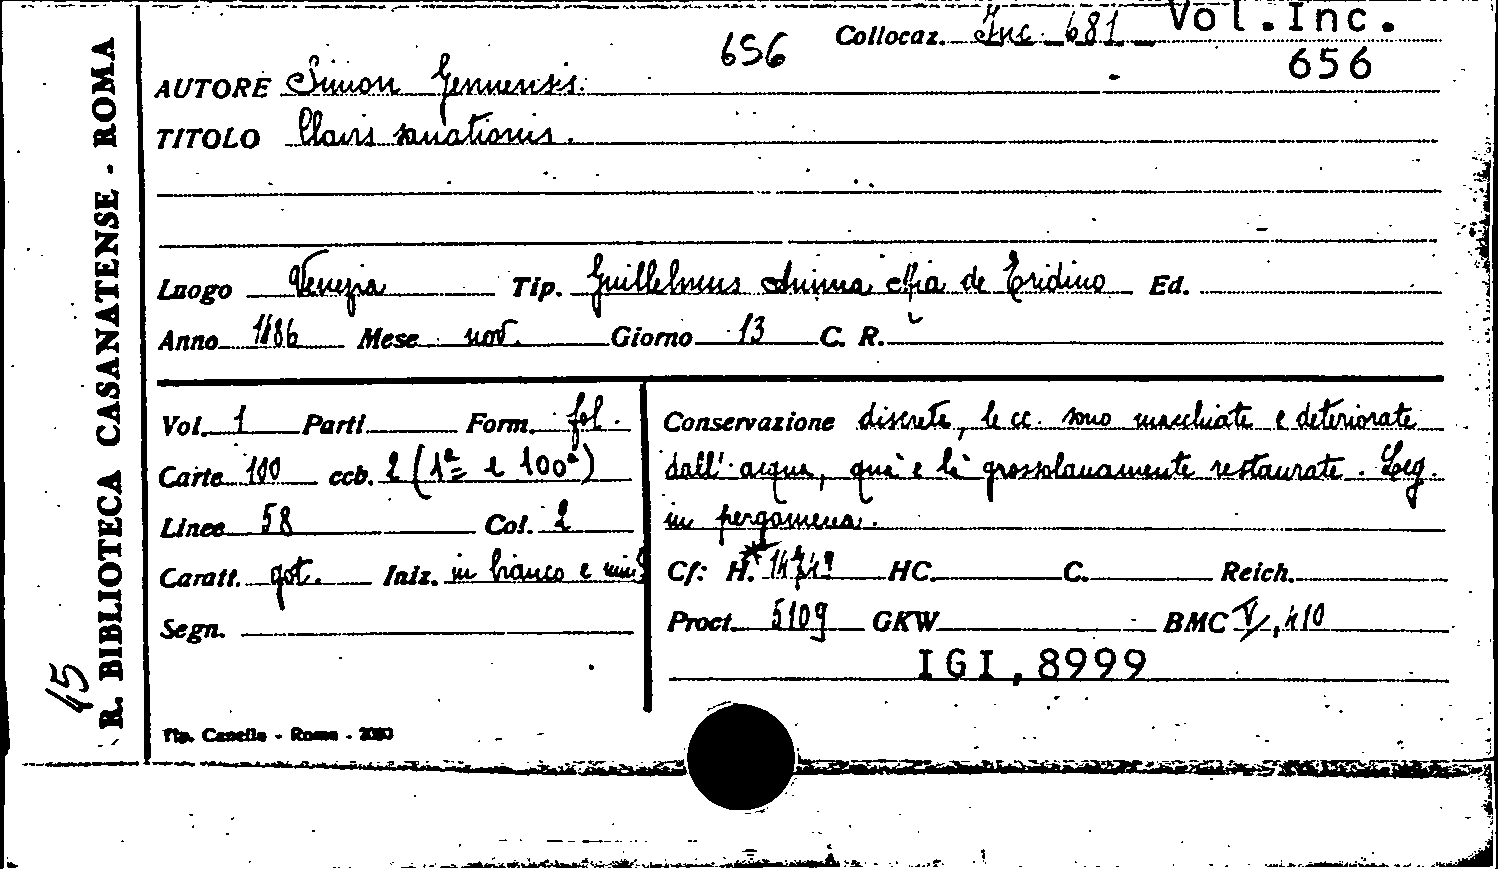 Collocaz. Inc. 681 Vol.Inc.
656 656
AUTORE Simon Genuensis.
TITOLO Clavis sanationis.
Luogo Venezia Tip. Guillelmus Anima Mia de Tridino Ed.
Anno 1486 Mese nov. Giorno 13 C. R.
Vol. 1 Parti Form. fol.
Carte 100 ccb. 2 (1ª e 100ª)
Linee 58 Col. 2
Caratt. got. Iniz. in bianco e min.
Segn.
Conservazione discreta, le cc. sono macchiate e deteriorate
dall'acqua, qua e là grossolanamente restaurate. Leg.
in pergamena.
Cf: H. 14749 HC. C. Reich.
Proct. 5109 GKW BMC V, 410
IGI, 8999
Tip. Canella - Roma -
R. BIBLIOTECA CASANATENSE - ROMA
45